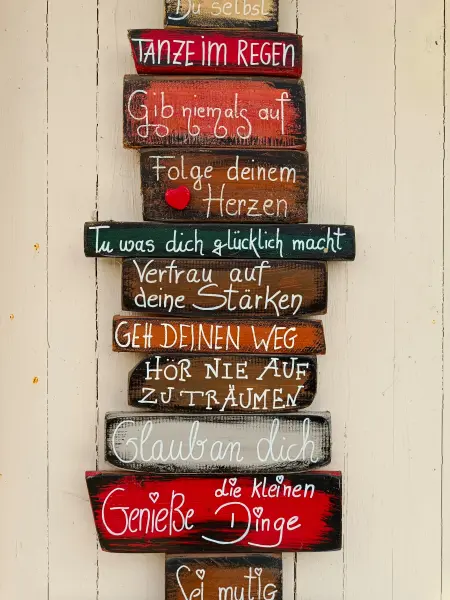 Du selbst
TANZE im REGEN
Gib niemals auf
Folge deinem
Herzen
Tu was dich glücklich macht
Vertrau auf
deine Stärken
GEH DEINEN WEG
HÖR NIE AUF
ZU TRÄUMEN
Glaub an dich
Genieße die kleinen
Dinge
Sei mutig